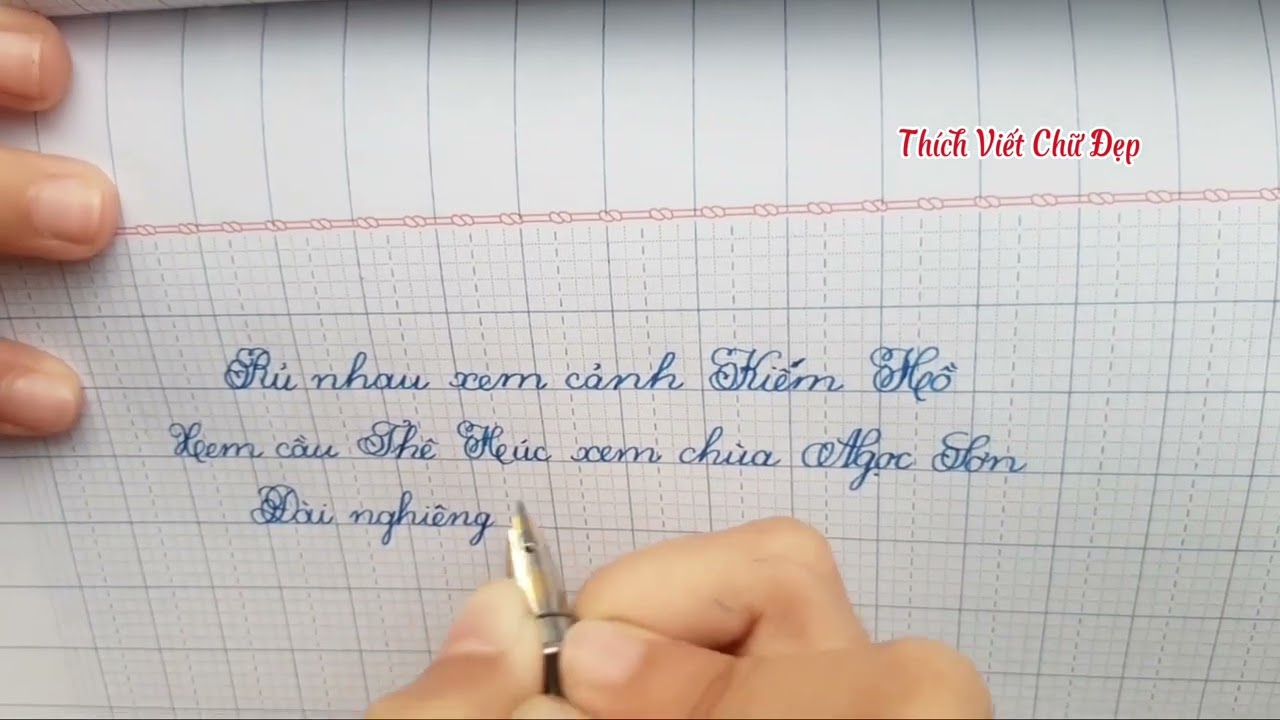 Thích Viết Chữ Đẹp
Rủ nhau xem cảnh Kiếm Hồ
Xem cầu Thê Húc xem chùa Ngọc Sơn
Đài nghiêng